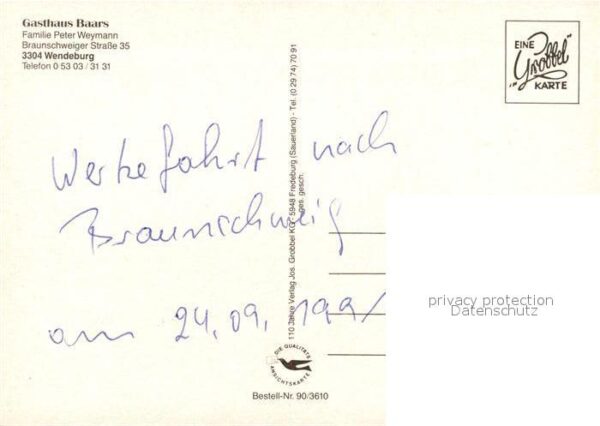 Gasthaus Baars
Familie Peter Weymann
Braunschweiger Straße 35
3304 Wendeburg
Telefon 0 53 03 / 31 31
EINE
"Grobbel"
KARTE
Werkefahrt nach
Braunschweig
am 24.09.1991
110 Jahre Verlag Jos. Grobbel KG · 5948 Fredeburg (Sauerland) - Tel. (0 29 74) 70 91
ges. gesch.
privacy protection
Datenschutz
DIE QUALITÄTS
ANSICHTSKARTE
Bestell-Nr. 90/3610